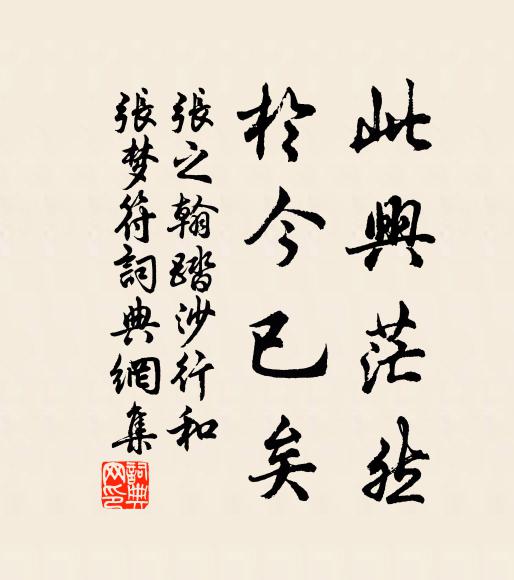 此興茫然
於今已矣
張之翰踏沙行和
張梦符詞典網集
詞典网印